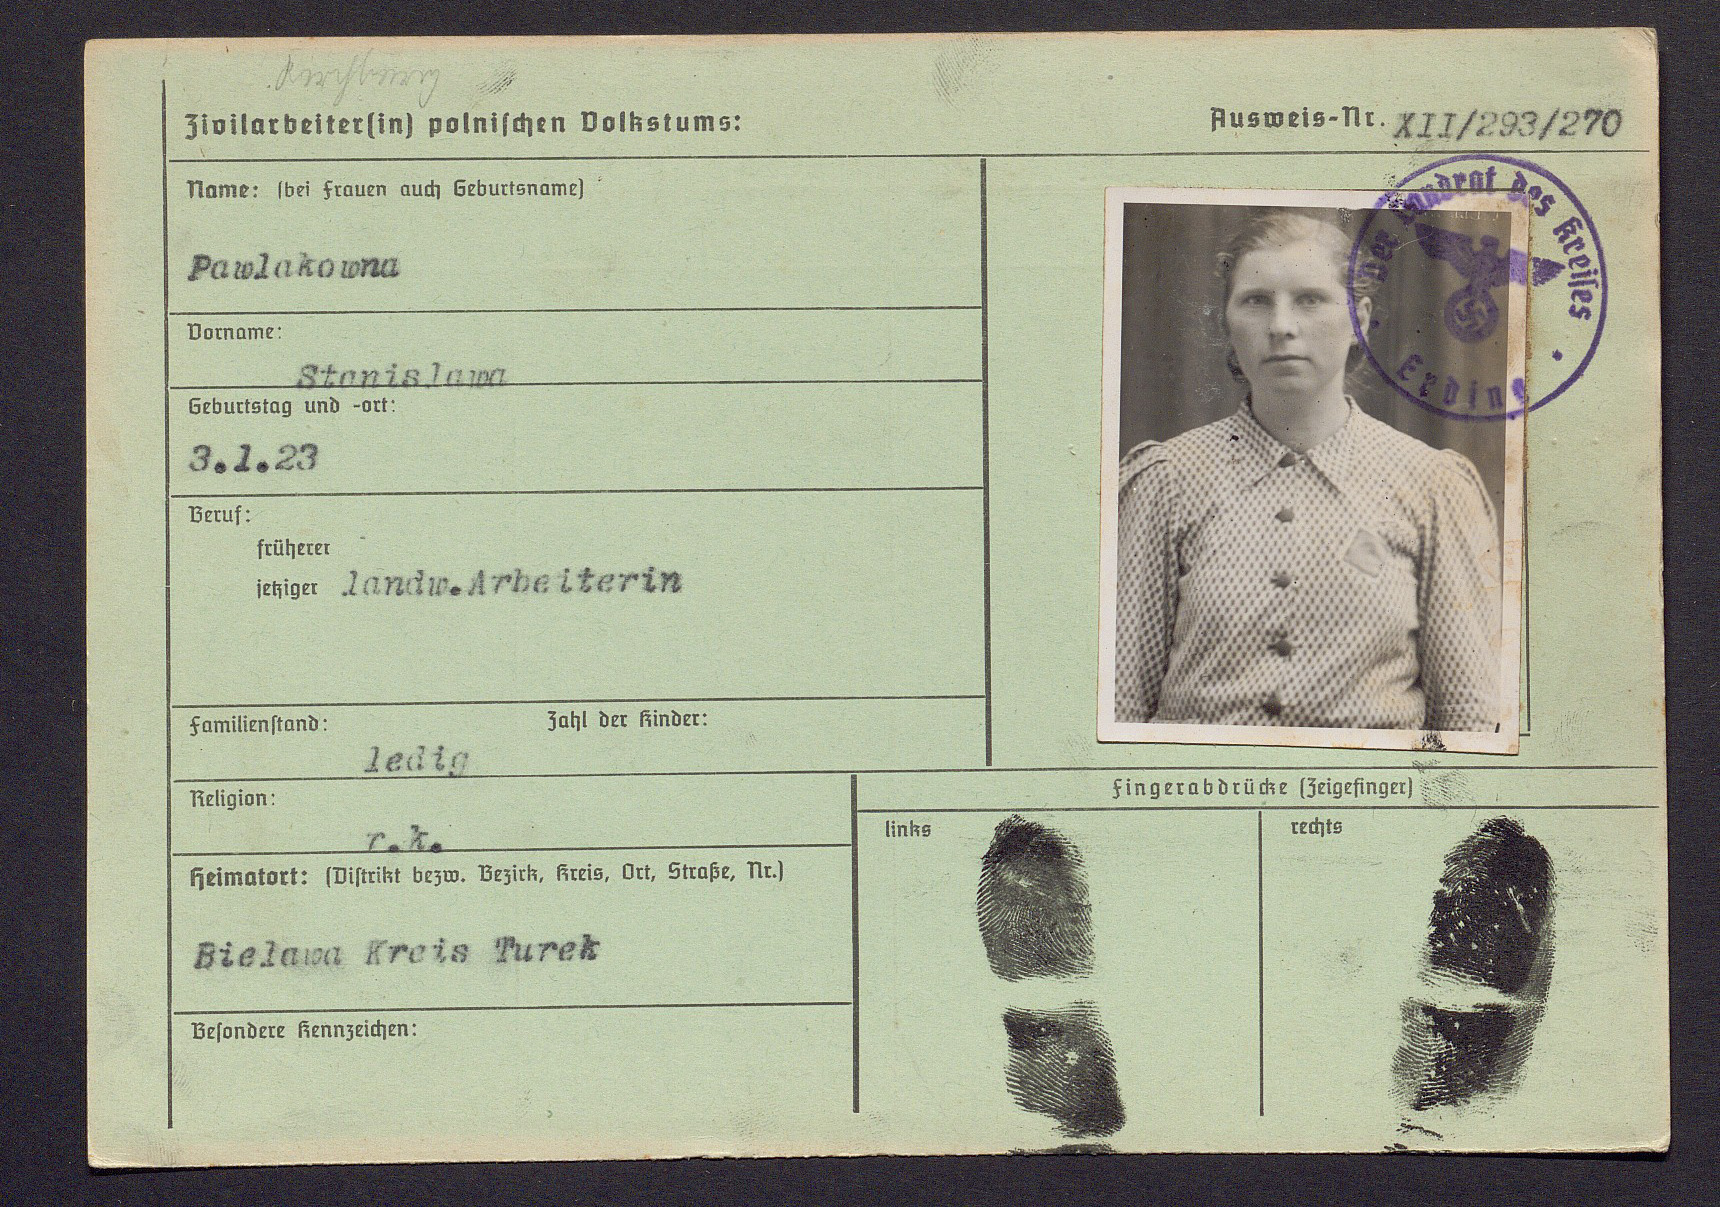 Zivilarbeiter(in) polnischen Volkstums:
Ausweis-Nr. XII/293/270
Name: (bei Frauen auch Geburtsname)
Pawlakowna
Vorname:
Stanislawa
Geburtstag und -ort:
3.1.23
Beruf:
früherer
jetziger landw.Arbeiterin
Familienstand: Zahl der Kinder:
ledig
Religion:
r.k.
Heimatort: (Distrikt bezw. Bezirk, Kreis, Ort, Straße, Nr.)
Bielawa Kreis Turek
Besondere Kennzeichen:
Der Landrat des Kreises
Erding
Fingerabdrücke (Zeigefinger)
links rechts